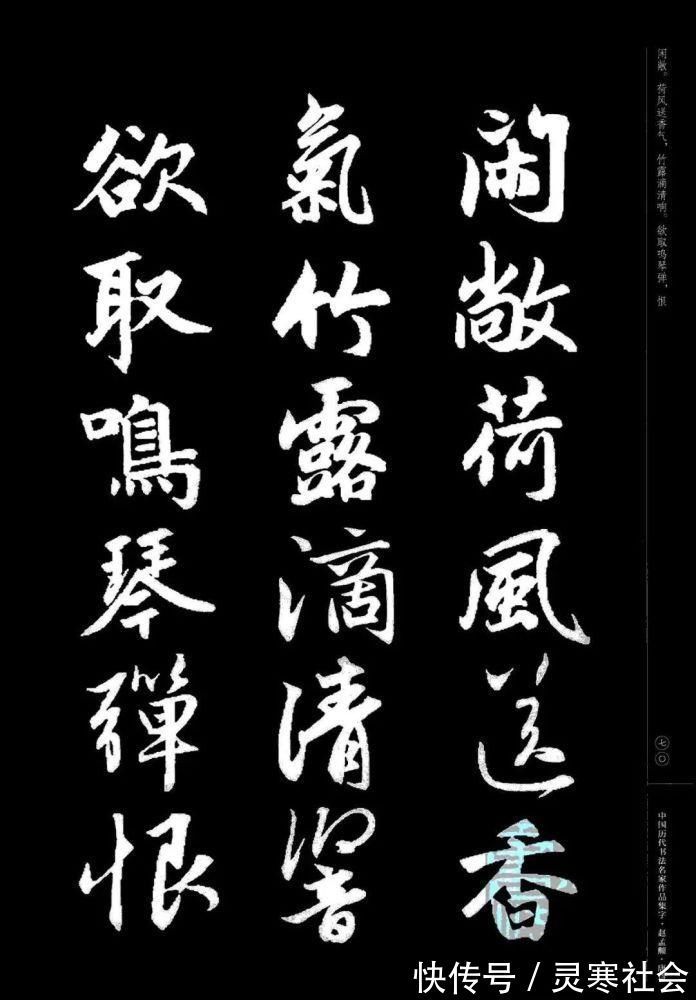 闲敞。荷风送香气，竹露滴清响。欲取鸣琴弹，恨
閑敞荷風送香
氣竹露滴清響
欲取鳴琴彈恨
七〇
中国历代书法名家作品集字·赵孟頫·
快传号/灵寒社会